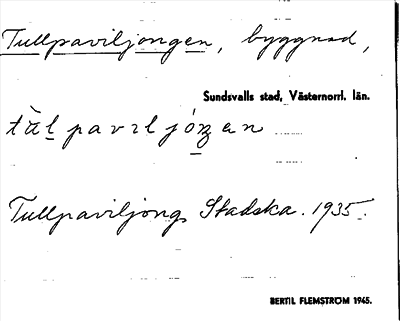 Tullpaviljongen, byggnad,
Sundsvalls stad, Västernorrl. län.
Tullpaviljong, Stadska. 1935.
BERTIL FLEMSTRÖM 1945.